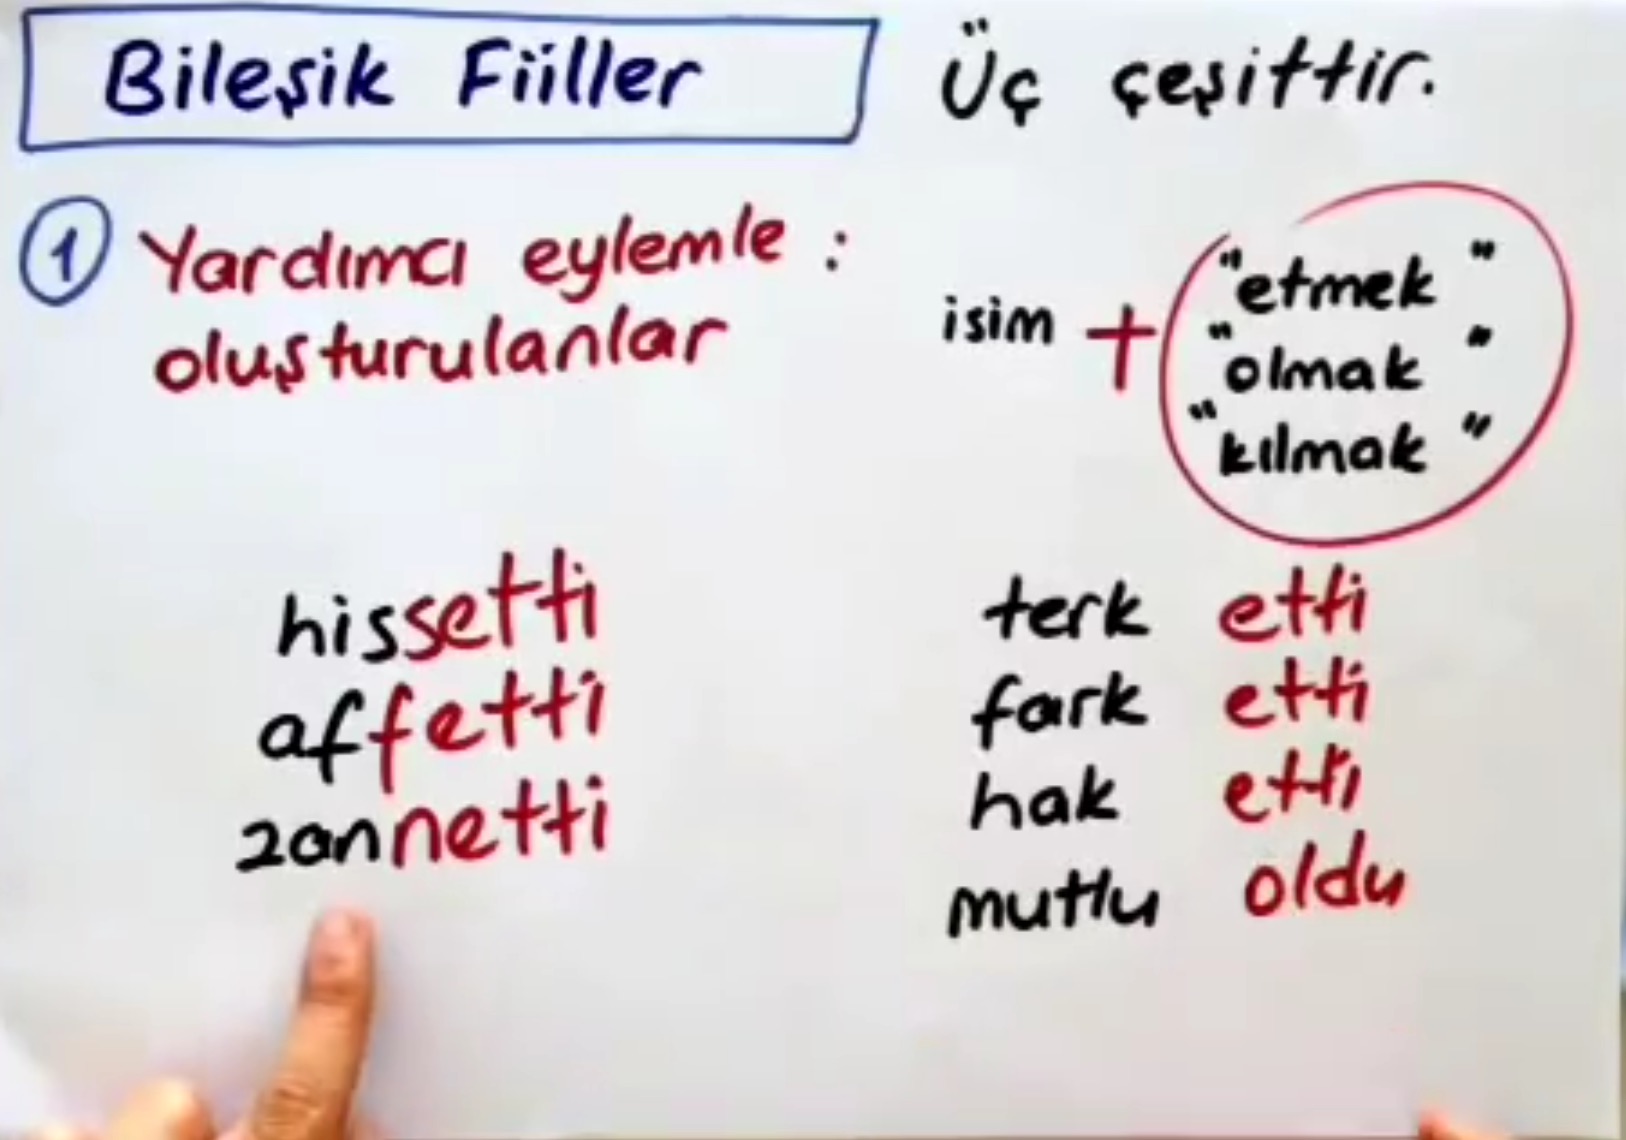 Bileşik Fiiller
Üç çeşittir.
1 Yardımcı eylemle :
oluşturulanlar
isim +
"etmek"
"olmak"
"kılmak"
hissetti
affetti
zannetti
terk etti
fark etti
hak etti
mutlu oldu